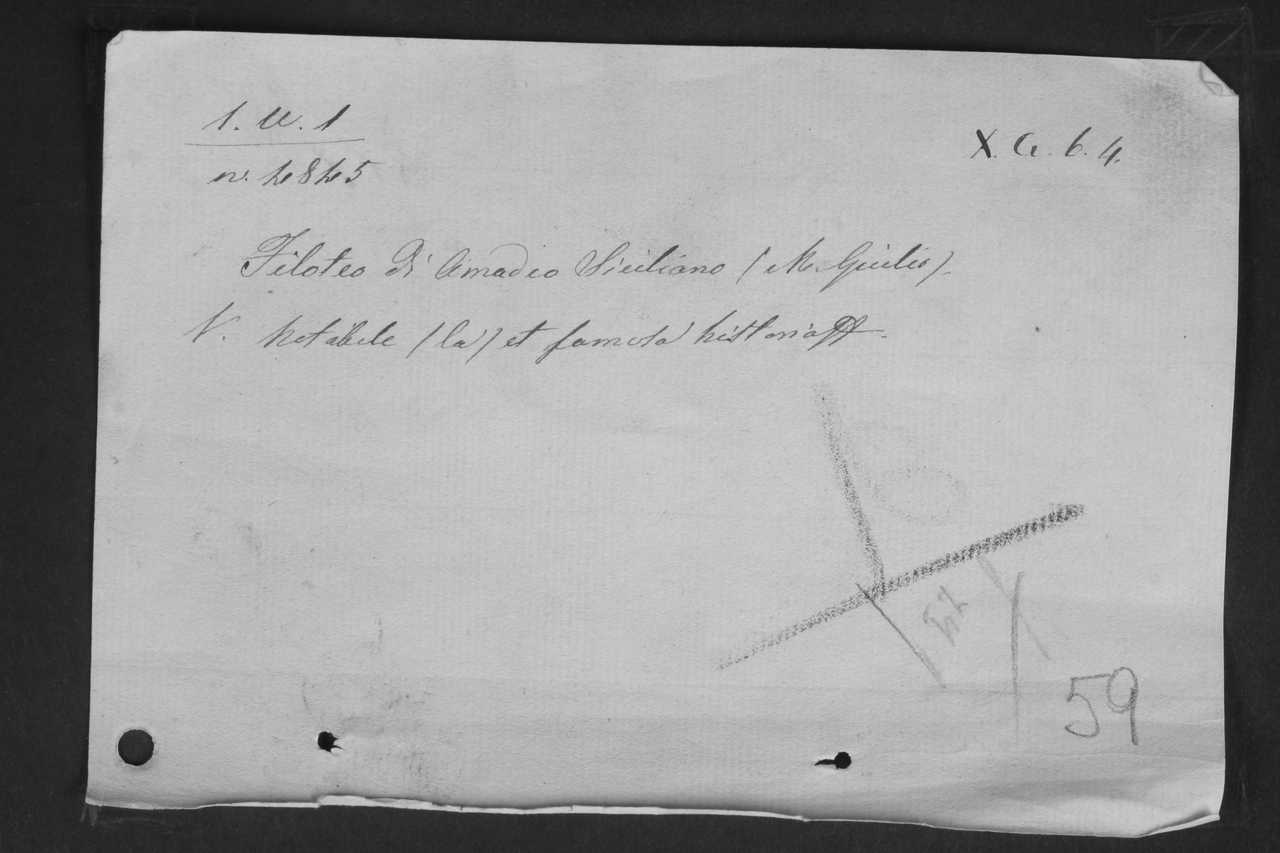 1. U. 1
X. G. 6. 4.
n. 4845
Filoteo di Amadeo Siciliano (M. Giulio).
V. Notabile (la) et famosa historia
59